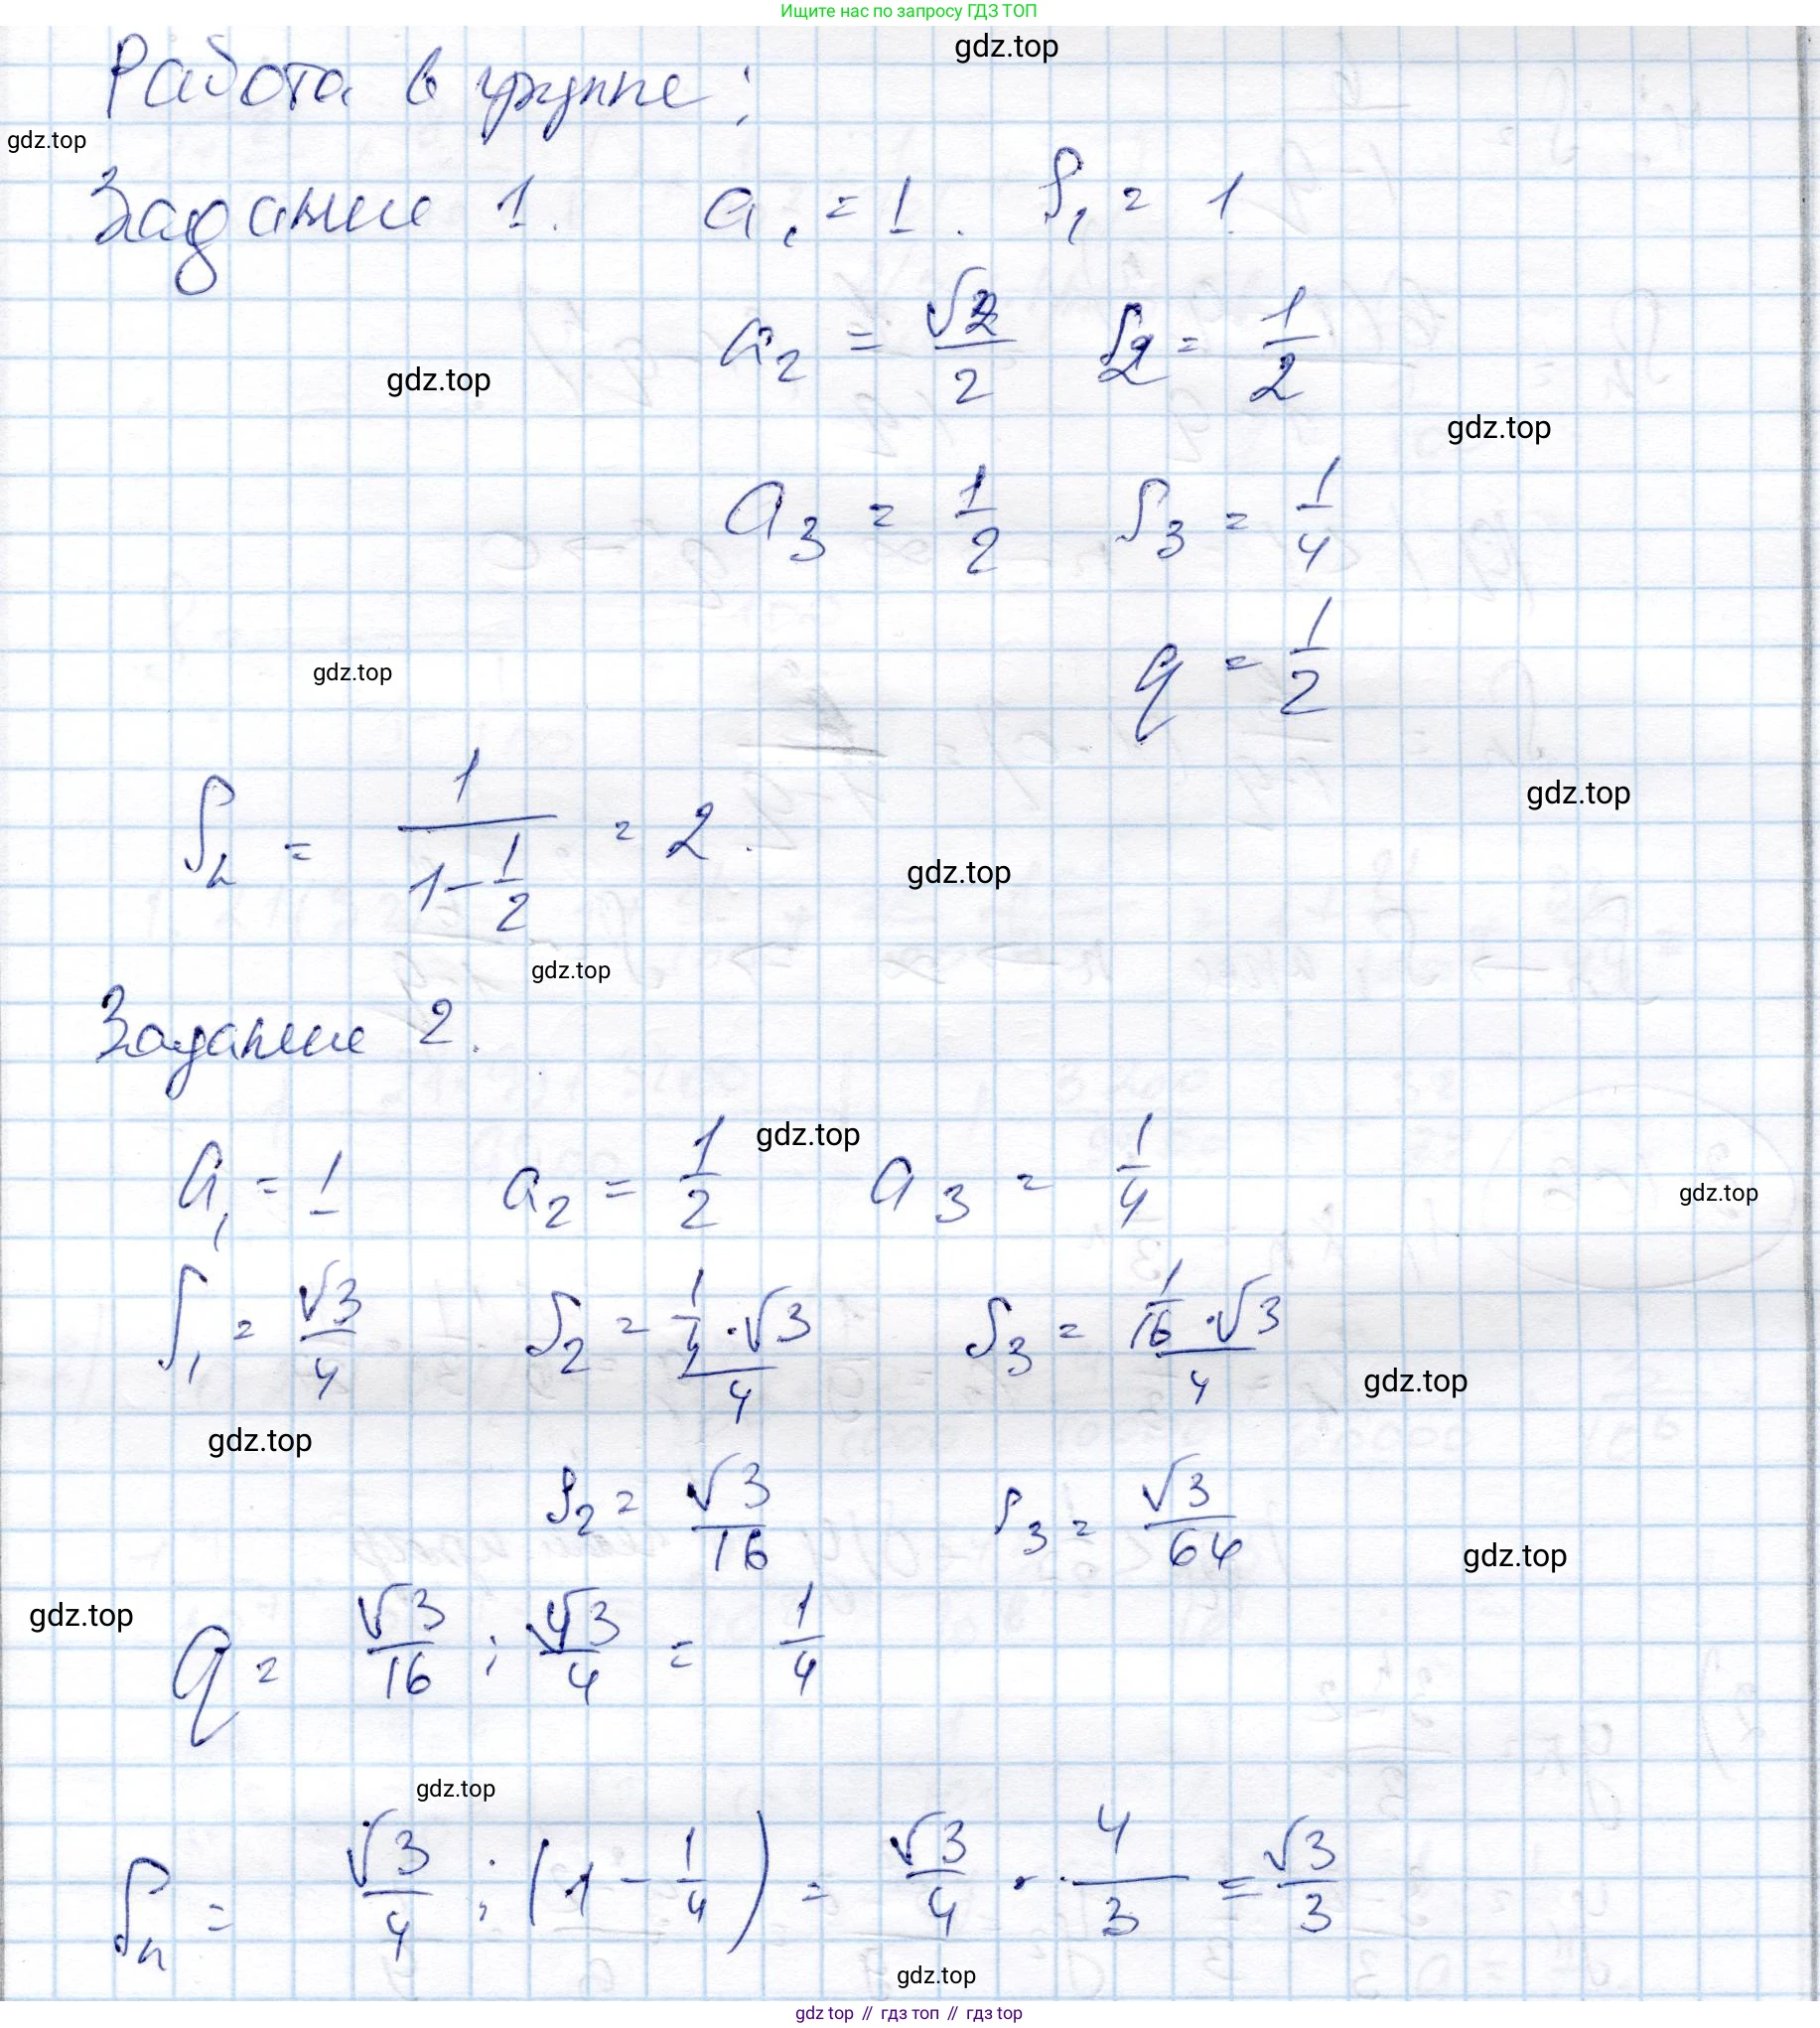 Ищите нас по запросу ГДЗ ТОП
Работа в группе:
gdz.top
gdz.top
Задание 1. a₁ = 1. S₁ = 1.
a₂ = √2/2 S₂ = 1/2
gdz.top
gdz.top
a₃ = 1/2 S₃ = 1/4
gdz.top
q = 1/2
gdz.top
Sₙ = 1/(1 - 1/2) = 2.
gdz.top
gdz.top
Задание 2.
gdz.top
a₁ = 1 a₂ = 1/2 a₃ = 1/4
gdz.top
S₁ = √3/4 S₂ = (1/4 · √3)/4 S₃ = (1/16 · √3)/4
gdz.top
gdz.top
S₂ = √3/16 S₃ = √3/64
gdz.top
gdz.top
q = √3/16 : √3/4 = 1/4
gdz.top
Sₙ = √3/4 : (1 - 1/4) = √3/4 · 4/3 = √3/3
gdz.top
gdz top // гдз топ // гдз top